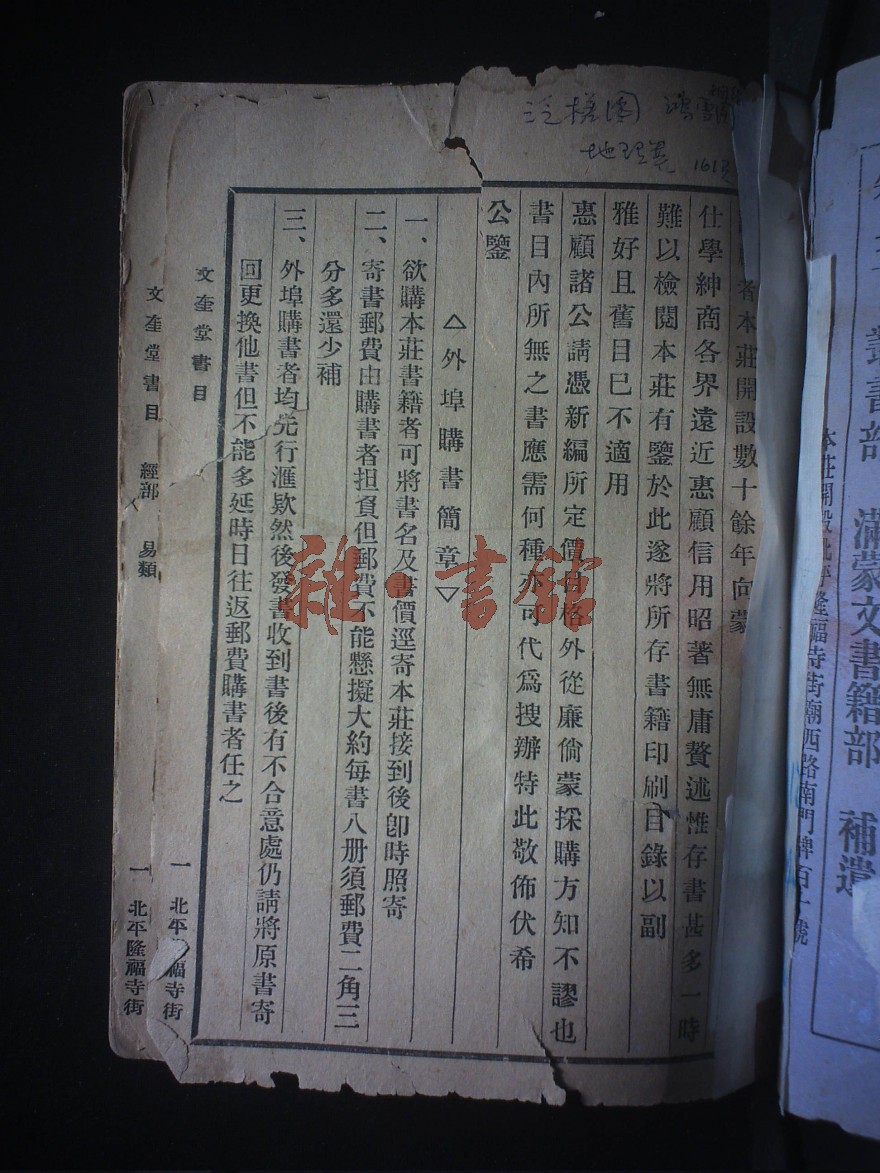 叢書部　滿蒙文書籍部　補遺
本莊開設北平隆福寺街廟西路南門牌百十號
泛槎圖
地理類
者本莊開設數十餘年向蒙
仕學紳商各界遠近惠顧信用昭著無庸贅述惟存書甚多一時
難以檢閱本莊有鑒於此遂將所存書籍印刷目錄以副
雅好且舊目已不適用
惠顧諸公請憑新編所定價目格外從廉倘蒙採購方知不謬也
書目內所無之書應需何種亦可代為搜辦特此敬佈伏希
公鑒
△外埠購書簡章▽
一、欲購本莊書籍者可將書名及書價逕寄本莊接到後卽時照寄
二、寄書郵費由購書者担負但郵費不能懸擬大約每書八册須郵費二角三
分多還少補
三、外埠購書者均先行滙欵然後發書收到書後有不合意處仍請將原書寄
回更換他書但不能多延時日往返郵費購書者任之
文奎堂書目　一　北平隆福寺街
文奎堂書目　經部　易類　一　北平隆福寺街
雜·書館